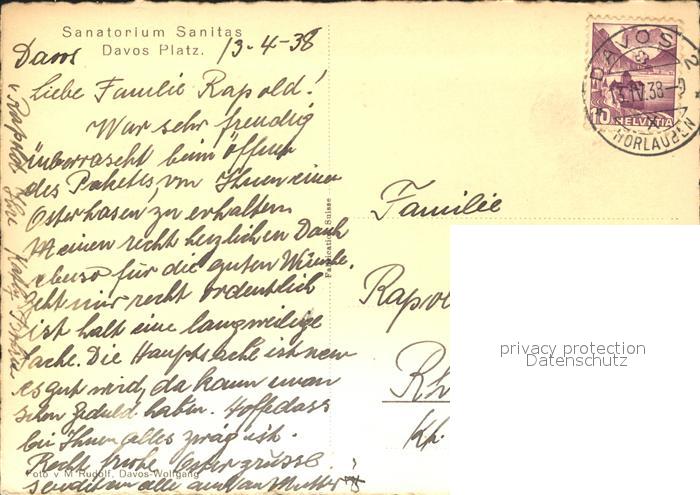 Sanatorium Sanitas
Davos Platz.
Davos 13-4-38
Liebe Familie Rapold!
War sehr freudig
überrascht beim öffnen
des Paketes, von Ihnen einen
Osterhasen zu erhalten.
Meinen recht herzlichen Dank
ebenso für die guten Wünsche.
Geht mir recht ordentlich
ist halt eine langweilige
Sache. Die Hauptsache ist wenn
es gut wird, da kann man
schon Geduld haben. Hoffe dass
bei Ihnen alles zwäg ist.
Recht frohe Ostergrüsse
sendet an alle auch an Mutter
Foto v M Rudolf, Davos-Wolfgang
Fabrication Suisse
DAVOS 2
13.IV.38-9
HORLAUBEN
10 HELVETIA
Familie
Rapol
Rh
Kh.
privacy protection
Datenschutz